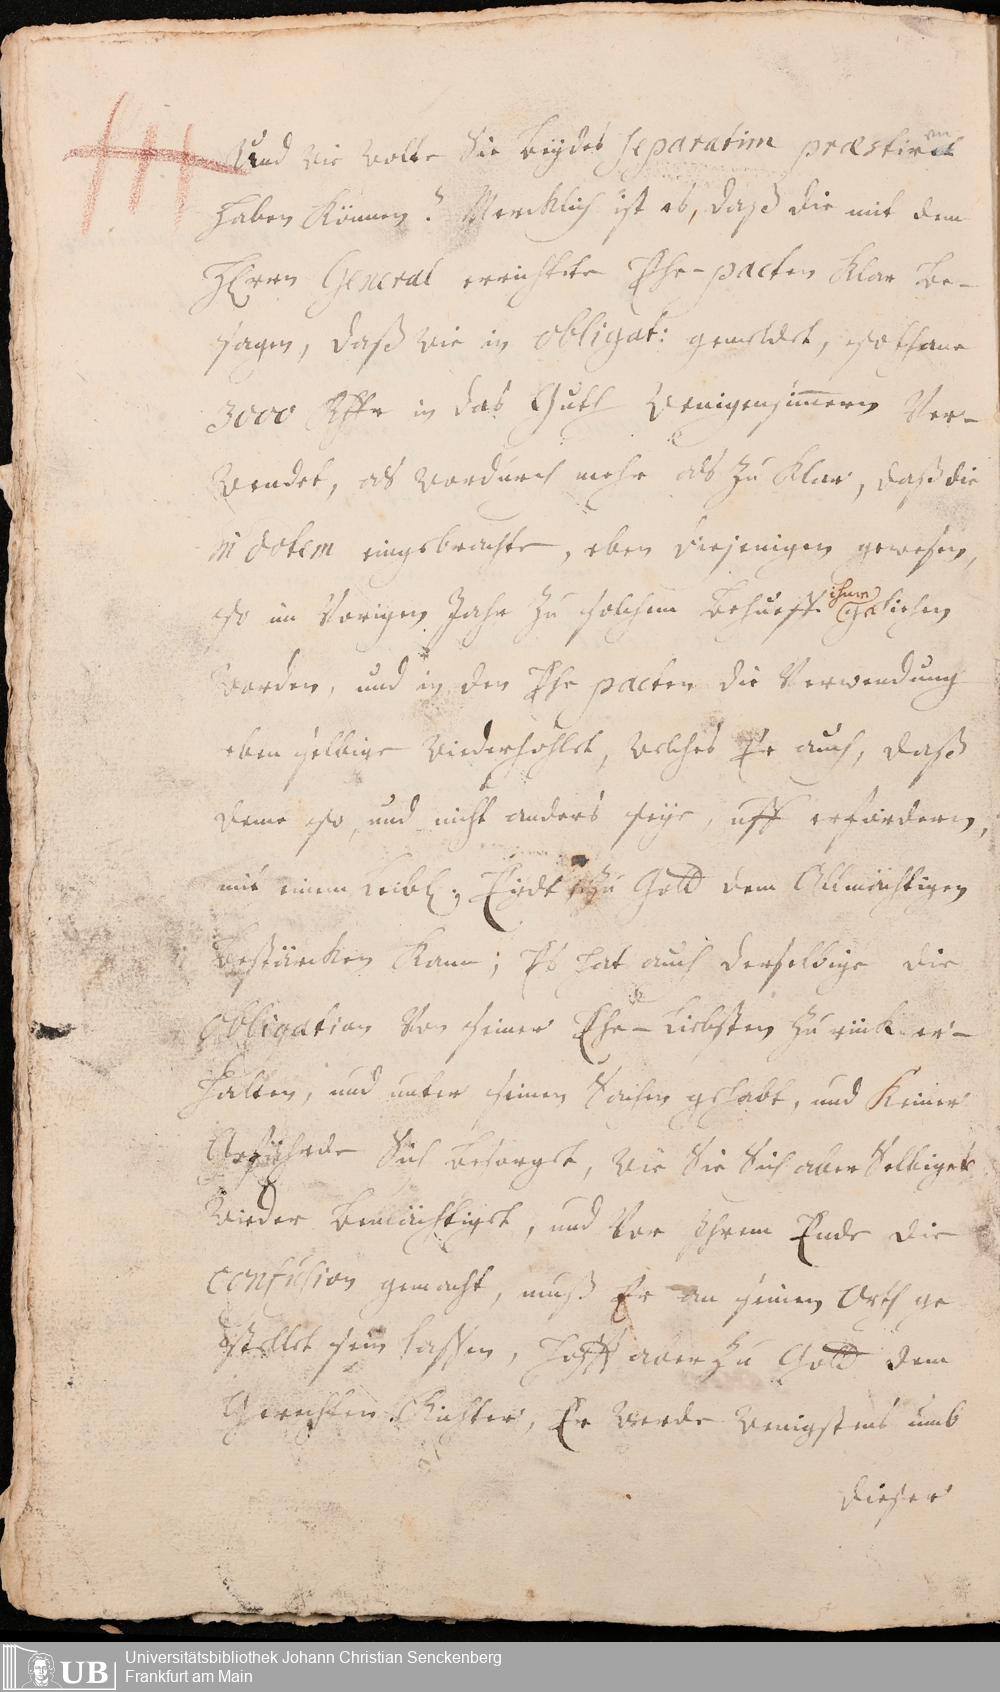 Und wie wolte Sie beydes separatim præstiret
haben können? Mercklich ist es, daß die mit dem
HErrn General errichtete Ehe-pacten klar be-
sagen, daß wie in obligat: gemeldet, sothane
3000 Rthr in das Guth Wenigensim̅ern Ver-
wendet, als wordurch mehr als zu klar, daß die
in dotem eingebrachte, eben diejenigen gewesen,
so im Vorigen Jahr zu solchem behueff ihme geliehen
worden, und in den Ehe pacten die Verwendung
eben selbige wiederhohlet, welches Er auch, daß
deme so, und nicht anders seye, uff erfordern,
mit einem leibl: Eydt zu Gott dem Allmächtigen
bestärcken kann; Es hat auch derselbige die
Obligation Von seiner Ehe-Liebsten zurück er-
halten, und unter seinen Sachen gehabt, und keiner
Gefährde Sich besorget, wie Sie Sich aber Selbiger
wieder bemächtiget, und Vor Ihrem Ende die
confusion gemacht, muß Er an seinen Orth ge
stellet sein lassen, hofft aber zu Gott dem
Gerechten Richter, Er werde wenigstens umb
dieser
UB
Universitätsbibliothek Johann Christian Senckenberg
Frankfurt am Main